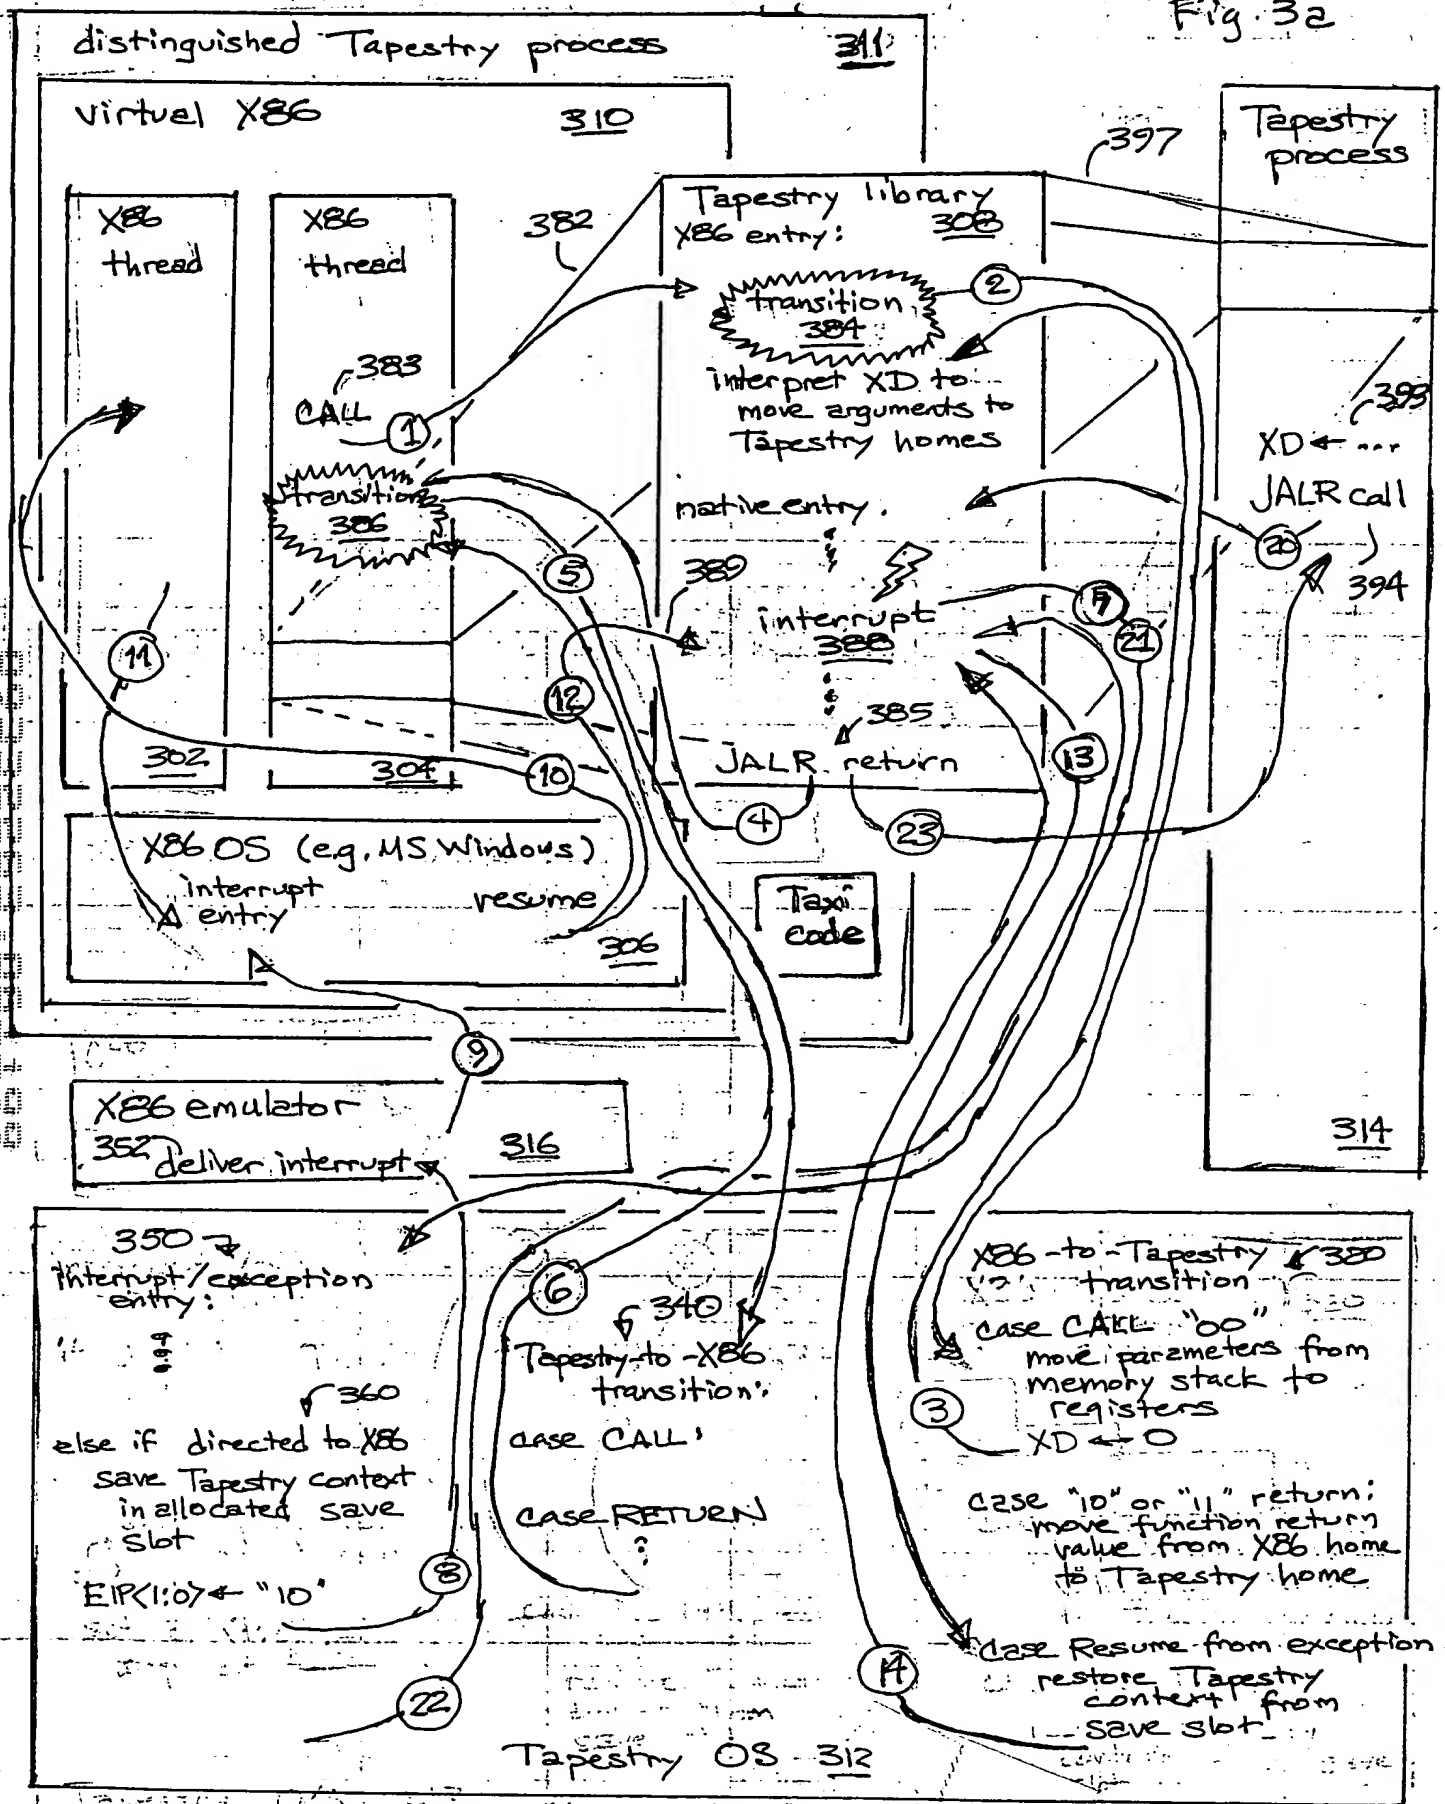 Fig. 3a
distinguished Tapestry process 311
virtual X86 310
X86
thread
302
X86
thread
383
CALL
1
transition
386
304
382
Tapestry library
308
X86 entry:
transition
384
2
interpret XD to
move arguments to
Tapestry homes
native entry.
389
interrupt
388
385
JALR return
397
Tapestry
process
393
XD ← ...
JALR call
20
394
314
5
7
21
11
12
10
13
4
23
X86 OS (e.g. MS Windows)
interrupt
entry
resume
306
Taxi
code
9
X86 emulator
352 deliver interrupt
316
350
interrupt/exception
entry:
360
else if directed to X86
save Tapestry context
in allocated save
slot
EIP<1:0> ← "10"
8
22
6
340
Tapestry-to-X86
transition:
case CALL:
case RETURN
X86-to-Tapestry 380
transition
case CALL "00"
move parameters from
memory stack to
registers
3
XD ← 0
case "10" or "11" return:
move function return
value from X86 home
to Tapestry home
case Resume from exception
restore Tapestry
context from
save slot
14
Tapestry OS 312